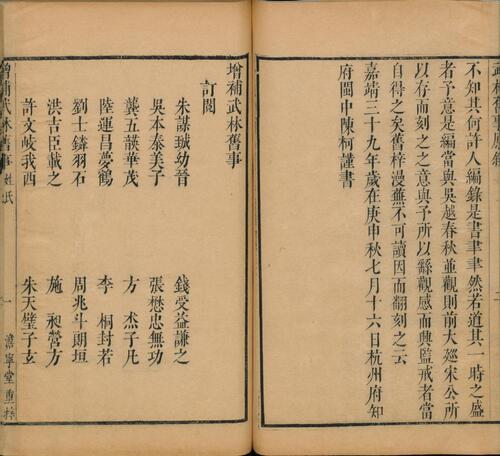 不知其何許人編錄是書聿聿然若道其一時之盛
者予意是編當與吳越春秋並觀則前大廵宋公所
以存而刻之之意與予所以繇觀感而興監戒者當
自得之矣舊梓漫蕪不可讀因而翻刻之云
嘉靖三十九年歲在庚申秋七月十六日杭州府知
府閩中陳柯謹書
增補武林舊事
訂閱
朱謀㙔幼晉 錢受益謙之
吳本泰美子 張懋忠無功
龔五韺華茂 方杰子凡
陸運昌夢鶴 李桐封若
劉士鏻羽石 周兆斗朗垣
洪吉臣載之 施㳟營方
許文岐我西 朱天璧子玄
增補武林舊事 姓氏 一 澹寧堂重梓